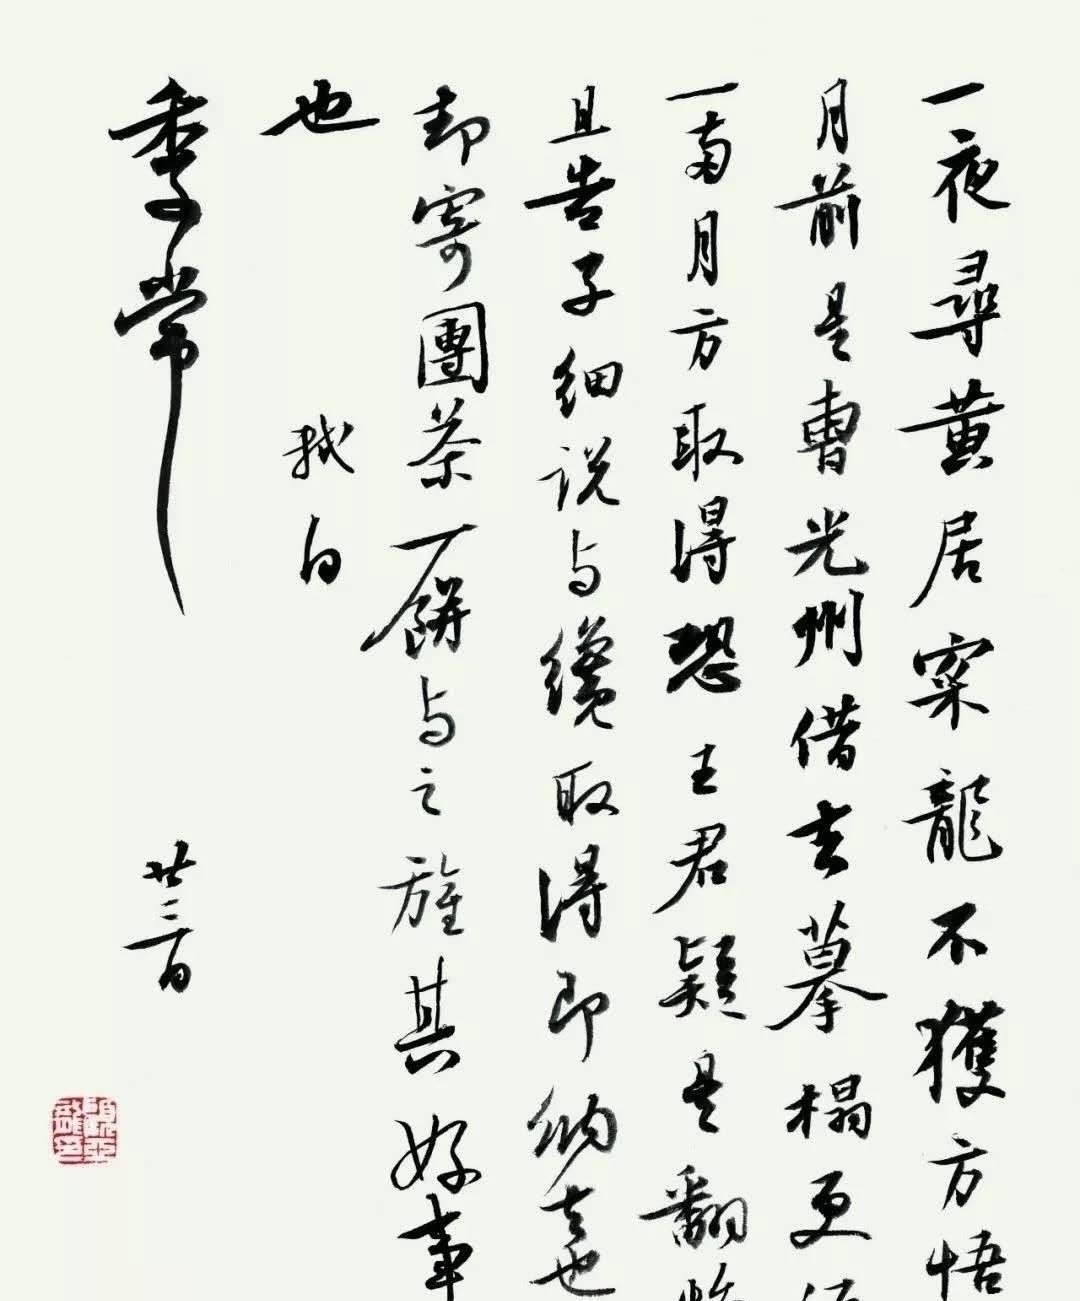 一夜尋黃居寀龍不獲方悟
月前是曹光州借去摹搨更
一兩月方取得恐王君疑是翻
且告子細說與纔取得即納去也
却寄團茶一餅與之旌其好事
也
軾白
季常
廿三日